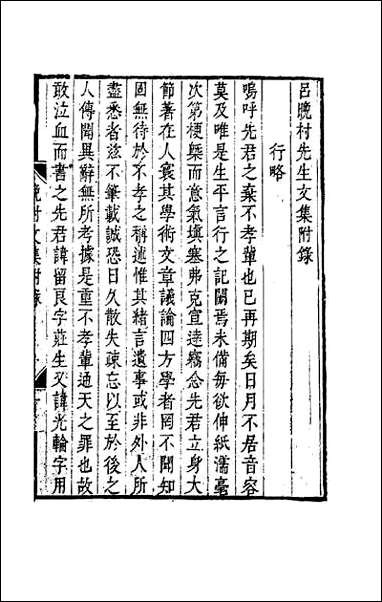 呂晚村先生文集附錄
行略
嗚呼先君之棄不孝輩也已再期矣日月不居音容
莫及唯是生平言行之記闕焉未備每欲伸紙濡毫
次第梗槩而意氣塡塞弗克宣達竊念先君立身大
節著在人寰其學術文章議論四方學者罔不聞知
固無待於不孝之稱述惟其緒言遺事或非外人所
盡悉者玆不筆載誠恐日久散失疎忘以至於後之
人傳聞異辭無所考據是重不孝輩通天之罪也故
敢泣血而書之先君諱留良字莊生又諱光輪字用
晚村文集附錄